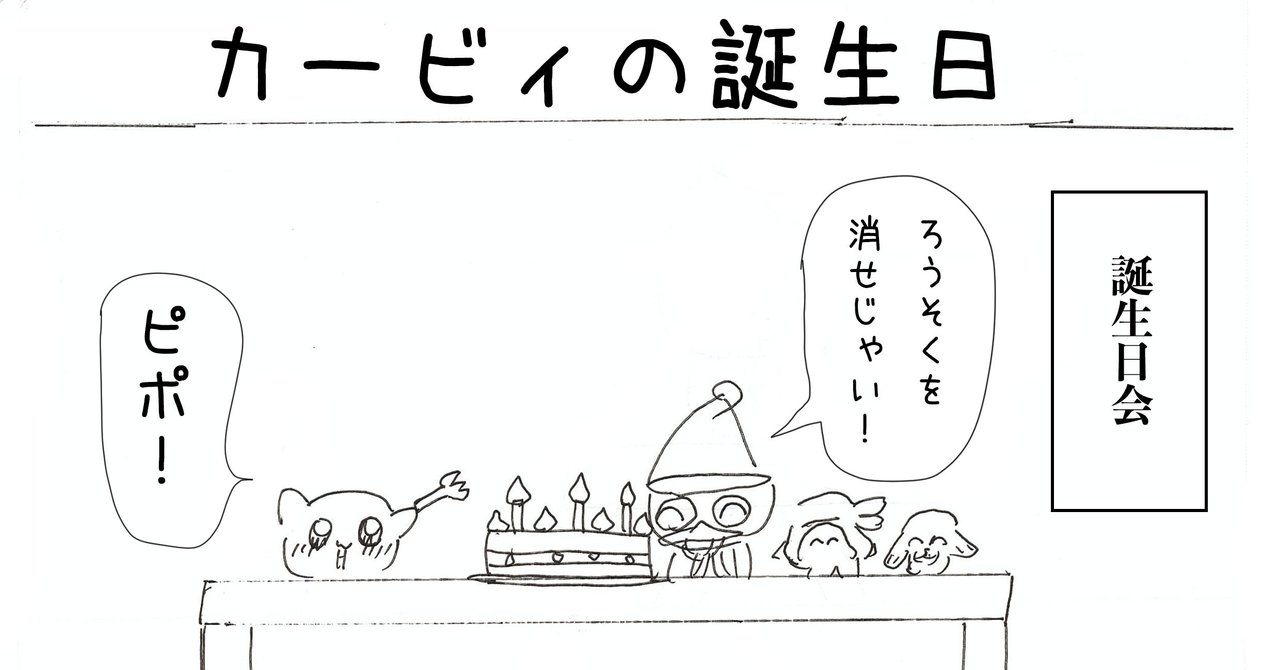 カービィの誕生日
誕生日会
ろうそくを
消せじゃい！
ピポ！